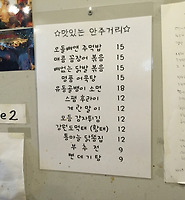 ☆맛있는 안주거리☆
오돌뼈엔 주먹밥 15
매콤 꼼장어 볶음 15
뼈없는 닭발 볶음 15
명품 어묵탕 15
유동골뱅이 소면 18
스팸 후라이 12
계란말이 12
모듬 감자튀김 12
강원도먹태 (황태) 12
통마늘 닭똥집 12
부추전 9
번데기탕 9
e 2